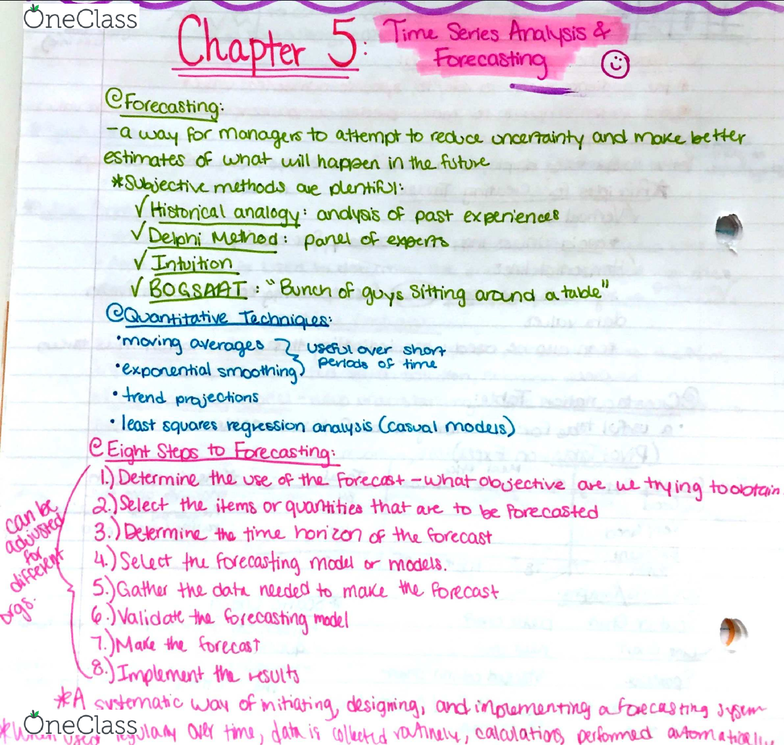 OneClass
Chapter 5: Time Series Analysis &
Forecasting
@Forecasting:
-a way for managers to attempt to reduce uncertainty and make better
estimates of what will happen in the future
*Subjective methods are plentiful:
✓Historical analogy: analysis of past experiences
✓Delphi Method: panel of experts
✓Intuition
✓BOGSAAT: "Bunch of guys sitting around a table"
@Quantitative Techniques:
•moving averages } useful over short
•exponential smoothing } periods of time
•trend projections
•least squares regression analysis (casual models)
@Eight Steps to Forecasting:
1.) Determine the use of the forecast - what objective are we trying to obtain
2.) Select the items or quantities that are to be forecasted
3.) Determine the time horizon of the forecast
4.) Select the forecasting model or models.
5.) Gather the data needed to make the forecast
6.) Validate the forecasting model
7.) Make the forecast
8.) Implement the results
can be
adjusted
for
different
orgs.
*A systematic way of initiating, designing, and implementing a forecasting system
*When used regularly over time, data is collected routinely, calculations performed automatically
OneClass